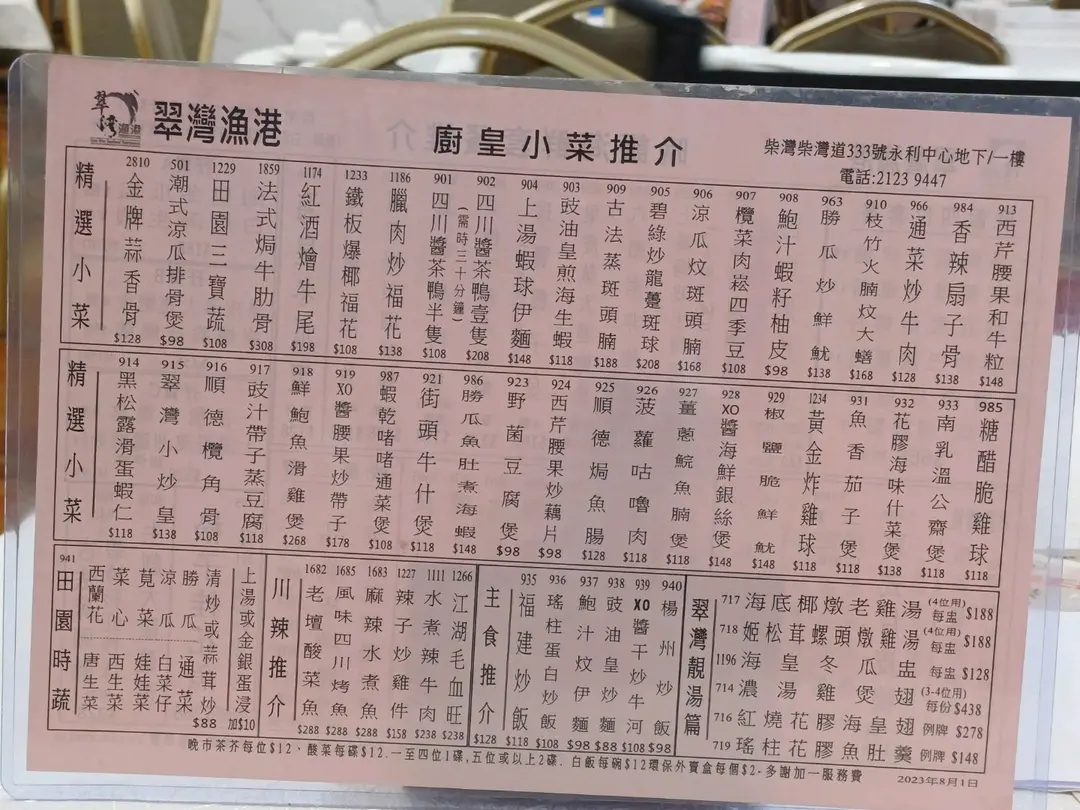 翠灣漁港
翠灣漁港
廚皇小菜推介
柴灣柴灣道333號永利中心地下/一樓
電話:2123 9447
精選小菜
2810 金牌蒜香骨 $128
501 潮式涼瓜排骨煲 $98
1229 田園三寶蔬 $108
1859 法式焗牛肋骨 $308
1174 紅酒燴牛尾 $198
1233 鐵板爆椰福花 $108
1186 臘肉炒福花 $138
901 四川醬茶鴨半隻 $108
902 四川醬茶鴨壹隻 (需時三十分鐘) $208
904 上湯蝦球伊麵 $148
903 豉油皇煎海生蝦 $118
909 古法蒸斑頭腩 $188
905 碧綠炒龍躉斑球 $208
906 涼瓜炆斑頭腩 $168
907 欖菜肉崧四季豆 $108
908 鮑汁蝦籽柚皮 $98
963 勝瓜炒鮮魷 $138
910 枝竹火腩炆大鱔 $168
966 通菜炒牛肉 $128
984 香辣扇子骨 $138
913 西芹腰果和牛粒 $148
精選小菜
914 黑松露滑蛋蝦仁 $118
915 翠灣小炒皇 $138
916 順德欖角骨 $108
917 豉汁帶子蒸豆腐 $118
918 鮮鮑魚滑雞煲 $268
919 XO醬腰果炒帶子 $178
987 蝦乾啫啫通菜煲 $108
921 街頭牛什煲 $118
986 勝瓜魚肚煮海蝦 $148
923 野菌豆腐煲 $98
924 西芹腰果炒藕片 $98
925 順德焗魚腸 $128
926 菠蘿咕嚕肉 $118
927 薑蔥鯇魚腩煲 $118
928 XO醬海鮮銀絲煲 $148
929 椒鹽脆鮮魷 $148
1234 黃金炸雞球 $118
931 魚香茄子煲 $118
932 花膠海味什菜煲 $138
933 南乳溫公齋煲 $118
985 糖醋脆雞球 $118
941 田園時蔬
西蘭花
菜心
莧菜
涼瓜
勝瓜
唐生菜
西生菜
娃娃菜
白菜仔
通菜
清炒或蒜茸炒 $88
上湯或金銀蛋浸 加$10
川辣推介
1682 老壇酸菜魚 $288
1685 風味四川烤魚 $288
1683 麻辣水煮魚 $288
1227 辣子炒雞件 $158
1111 水煮辣牛肉 $238
1266 江湖毛血旺 $238
主食推介
935 福建炒飯 $128
936 瑤柱蛋白炒飯 $118
937 鮑汁炆伊麵 $108
938 豉油皇炒麵 $98
939 XO醬干炒牛河 $88
940 楊州炒飯 $108
$98
翠灣靚湯篇
717 海底椰燉老雞湯 (4位用) 每盅 $188
718 姬松茸螺頭燉雞湯 (4位用) 每盅 $188
1196 海皇冬瓜盅 每盅 $128
714 濃湯雞煲翅 (3-4位用) 每份 $438
716 紅燒花膠海皇翅 例牌 $278
719 瑤柱花膠魚肚羹 例牌 $148
晚市茶芥每位$12、酸菜每碟$12.一至四位1碟,五位或以上2碟. 白飯每碗$12環保外賣盒每個$2-多謝加一服務費
2023年8月1日